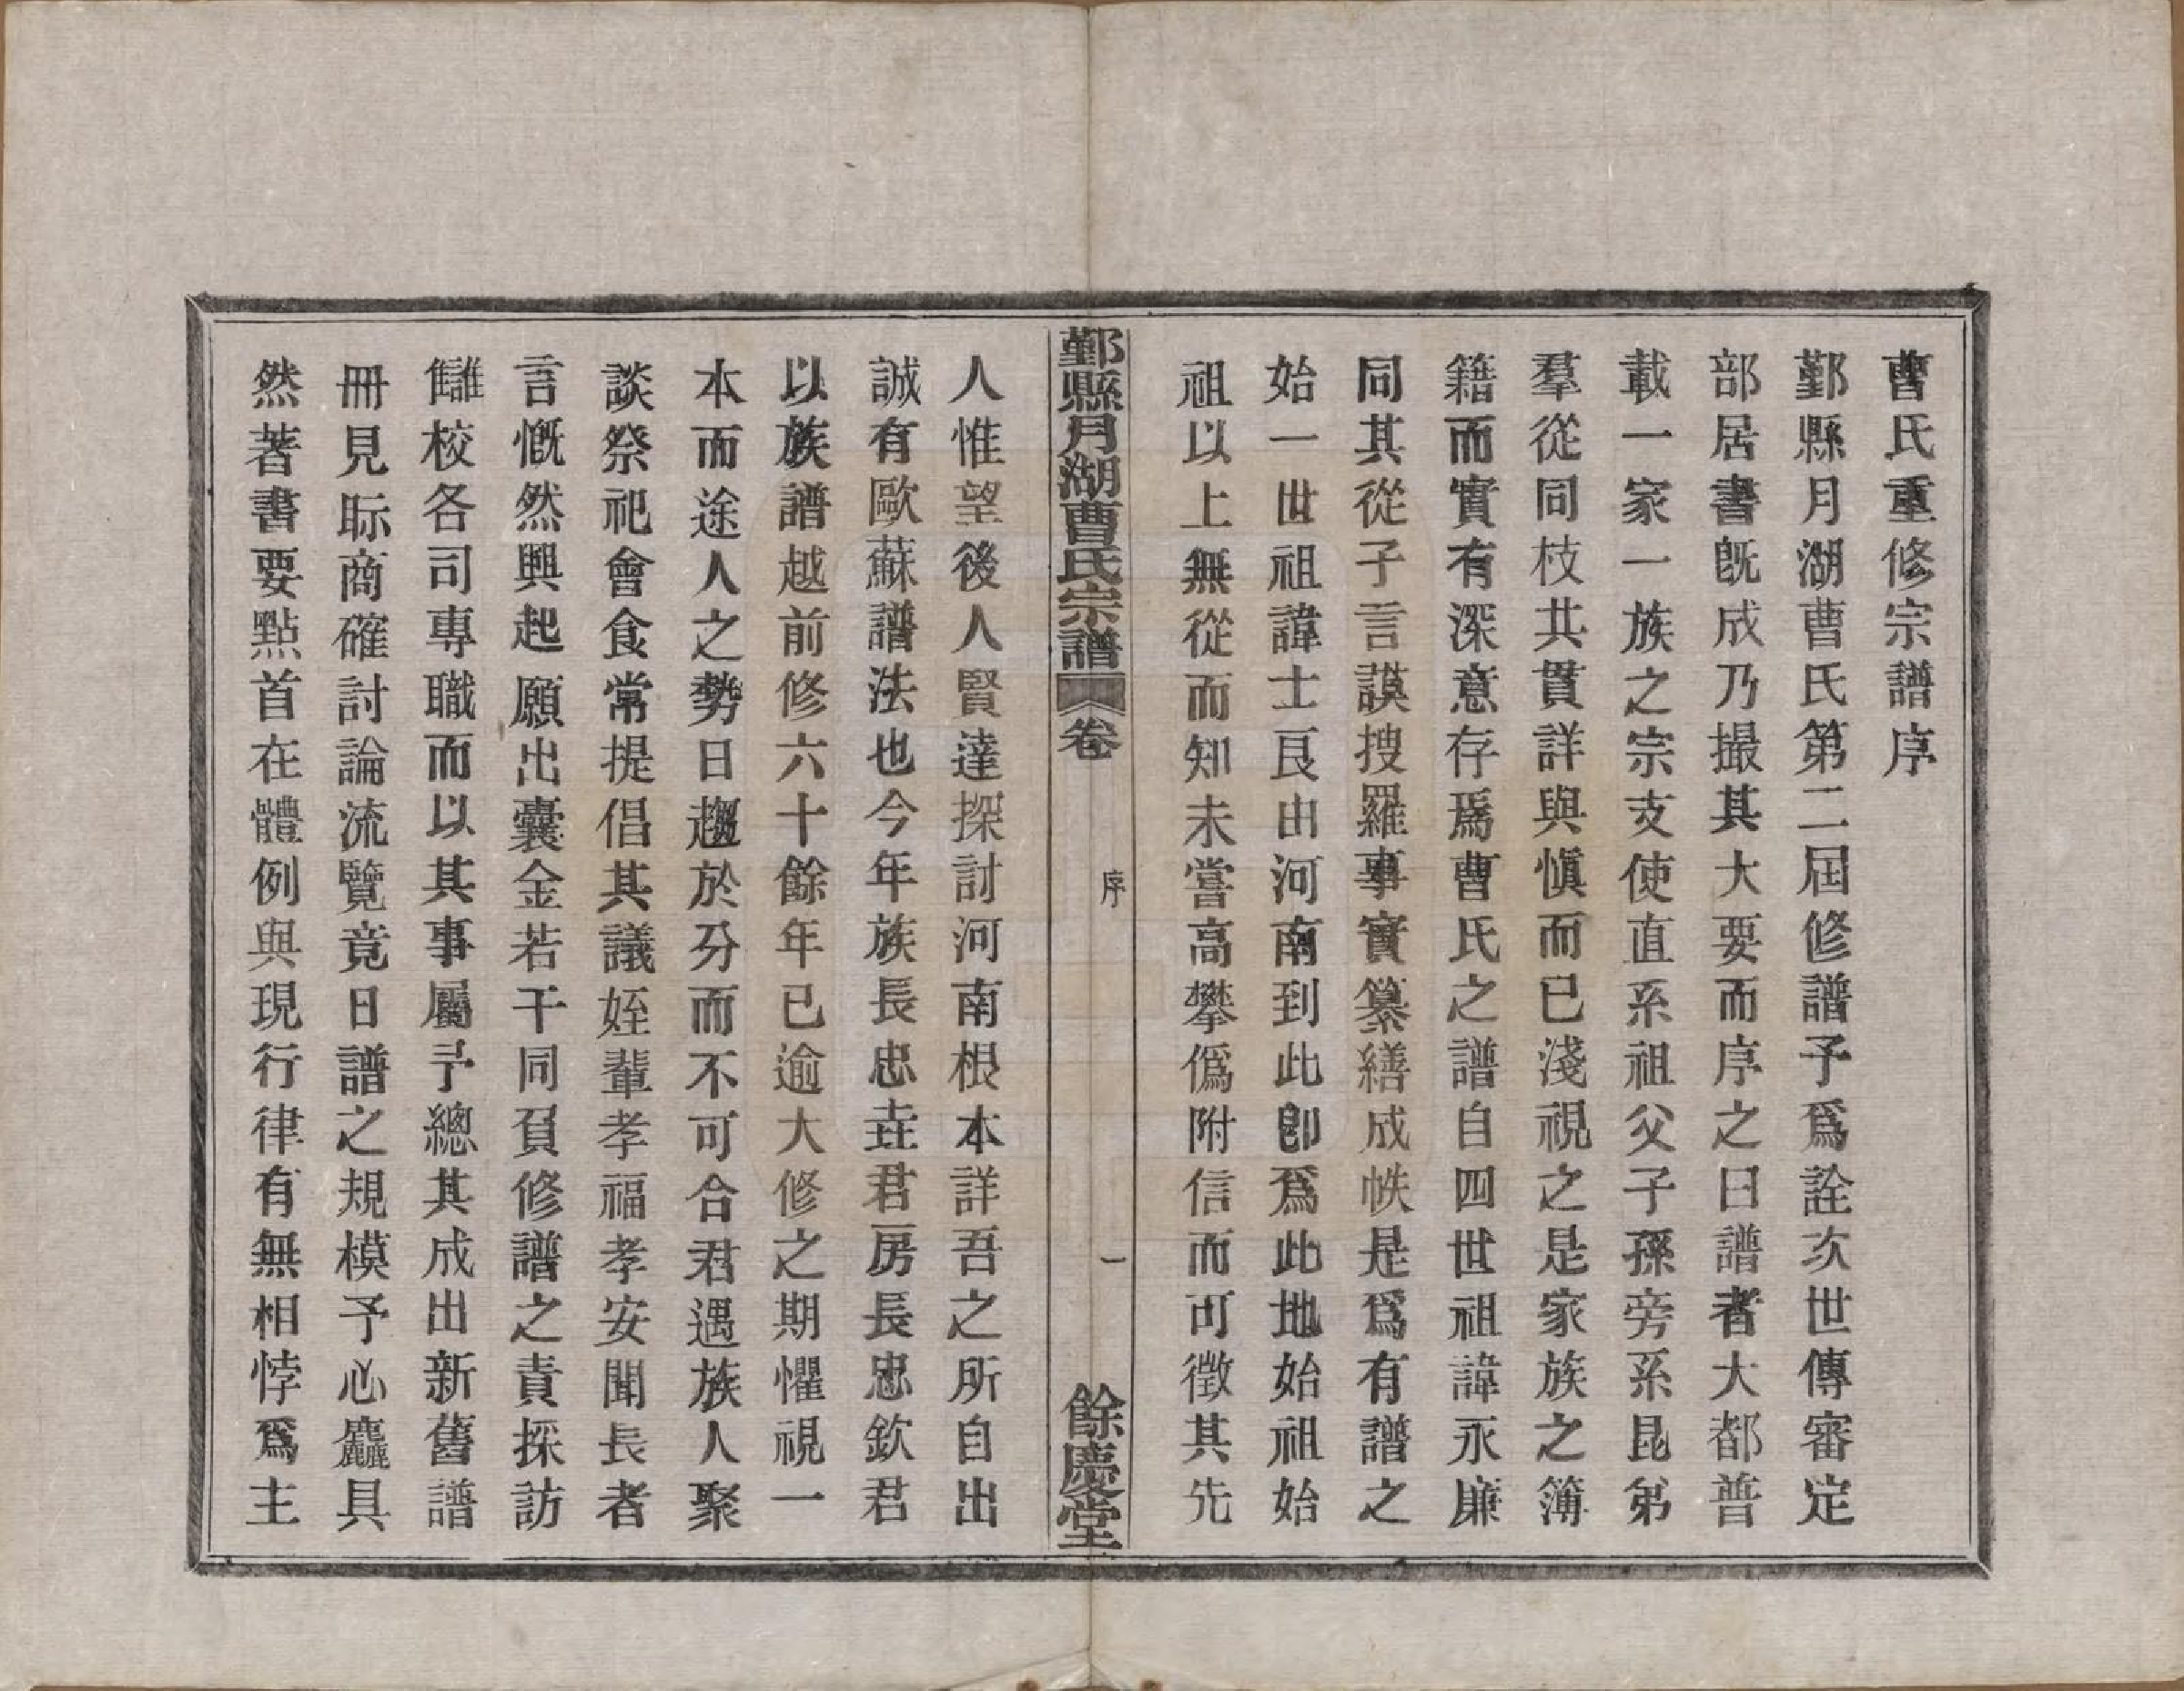 曹氏重修宗譜序
鄞縣月湖曹氏第二屆修譜予爲詮次世傳審定
部居書旣成乃撮其大要而序之曰譜者大都普
載一家一族之宗支使直系祖父子孫旁系昆弟
羣從同枝共貫詳與愼而已淺視之是家族之簿
籍而實有深意存焉曹氏之譜自四世祖諱永廉
同其從子言謨搜羅事實纂繕成帙是爲有譜之
始一世祖諱士良由河南到此卽爲此地始祖始
祖以上無從而知未嘗高攀僞附信而可徵其先
鄞縣月湖曹氏宗譜 卷 序 一 餘慶堂
人惟望後人賢達探討河南根本詳吾之所自出
誠有歐蘇譜法也今年族長忠垚君房長忠欽君
以族譜越前修六十餘年已逾大修之期懼視一
本而途人之勢日趨於分而不可合君遇族人聚
談祭祀會食常提倡其議姪輩孝福孝安聞長者
言慨然興起願出囊金若干同負修譜之責採訪
讎校各司專職而以其事屬予總其成出新舊譜
冊見眎商確討論流覽竟日譜之規模予心麤具
然著書要點首在體例與現行律有無相悖爲主